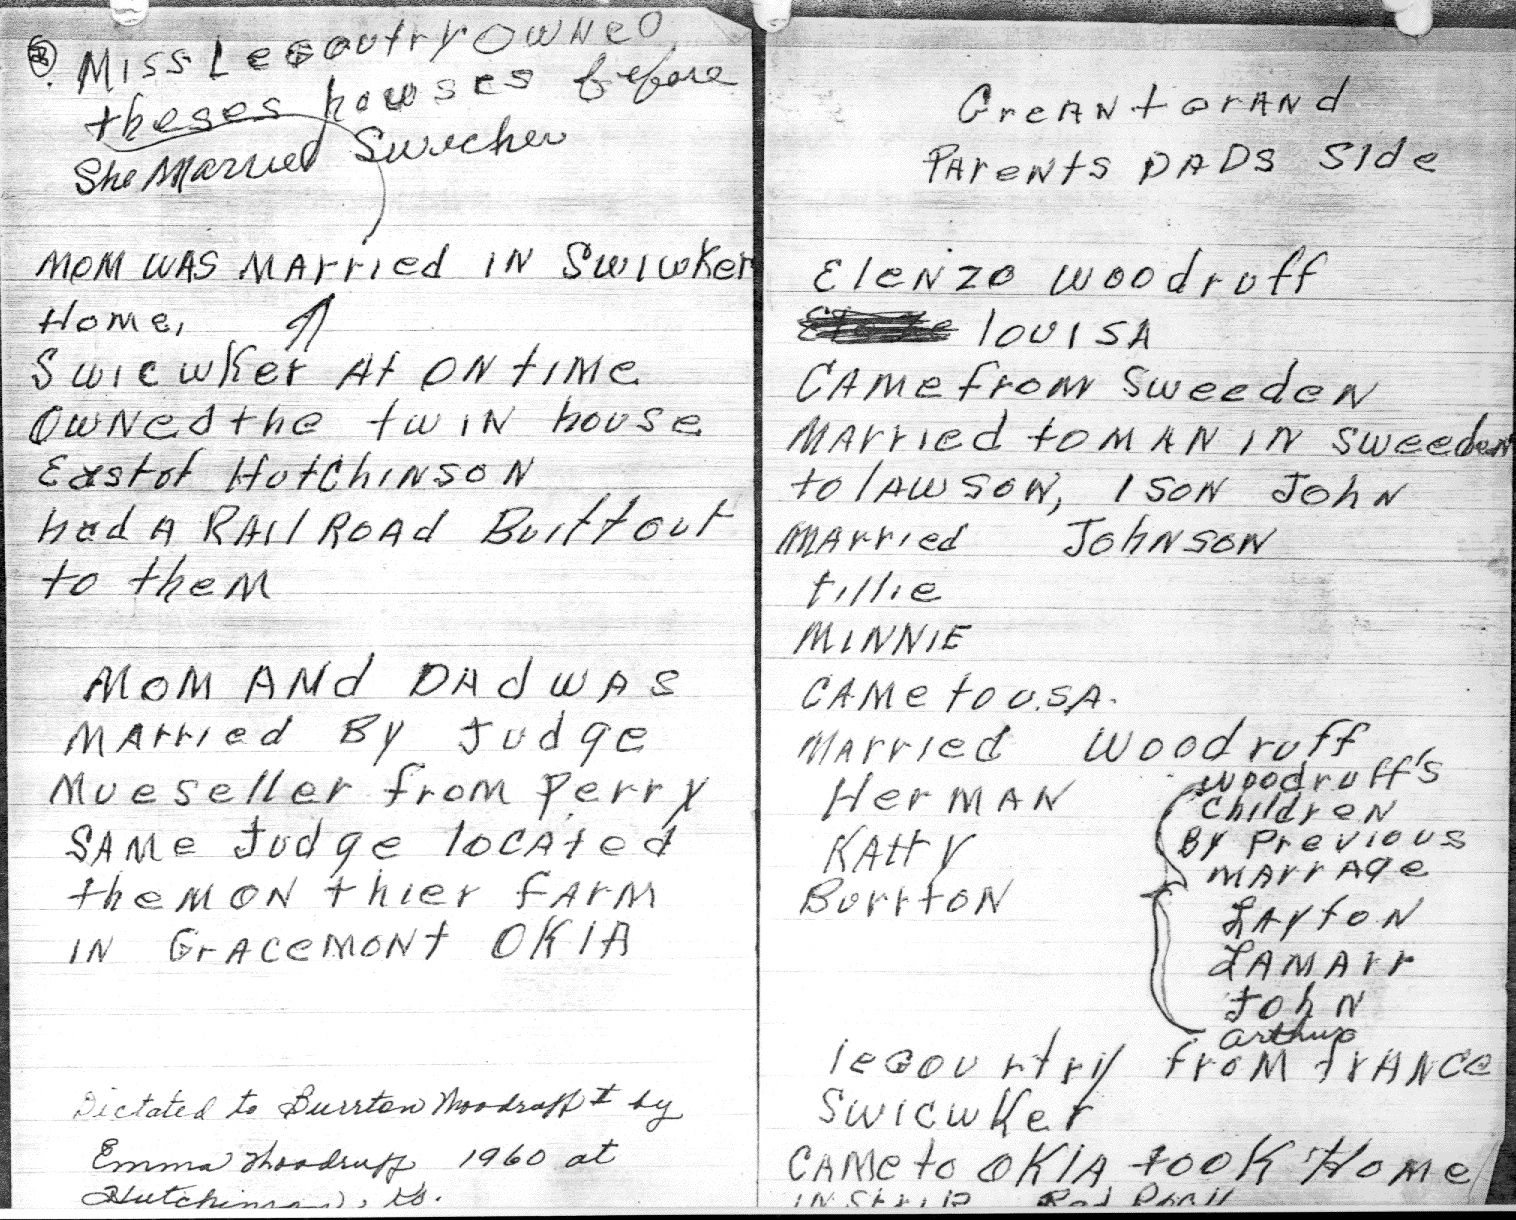 Miss Legoutry owned
theses howses before
She Married Swicher
MOM WAS MArried IN Swiwker
Home,
Swicwker At ON time
OwNed the twiN house
East of HutchiNsoN
had A RAilRoAd Built out
to theM
MOM ANd DAd wAs
MArried By Judge
Mueseller from Perry
SAMe Judge locAted
theM ON thier fArM
IN GrAcemoNt OKlA
Dictated to Burrton Woodruff I by
Emma Woodruff 1960 at
Hutchinson, Ks.
GreANt GrANd
PAreNts DADS Side
EleNzo Woodruff
louisA
CAMe from SweedeN
MArried to MAN IN SweedeN
to lAwsoN, 1 SoN JohN
MArried JohNsoN
tillie
MiNNIE
CAMe to U.S.A.
MArried Woodruff
HerMAN
KAtty
BurrtoN
Woodruff's
ChildreN
By Previous
MArrAge
LAytoN
LAMArr
JohN
Arthur
legourtry froM frANce
Swicwker
CAMe to OKlA took Home
IN Strip Red Rock